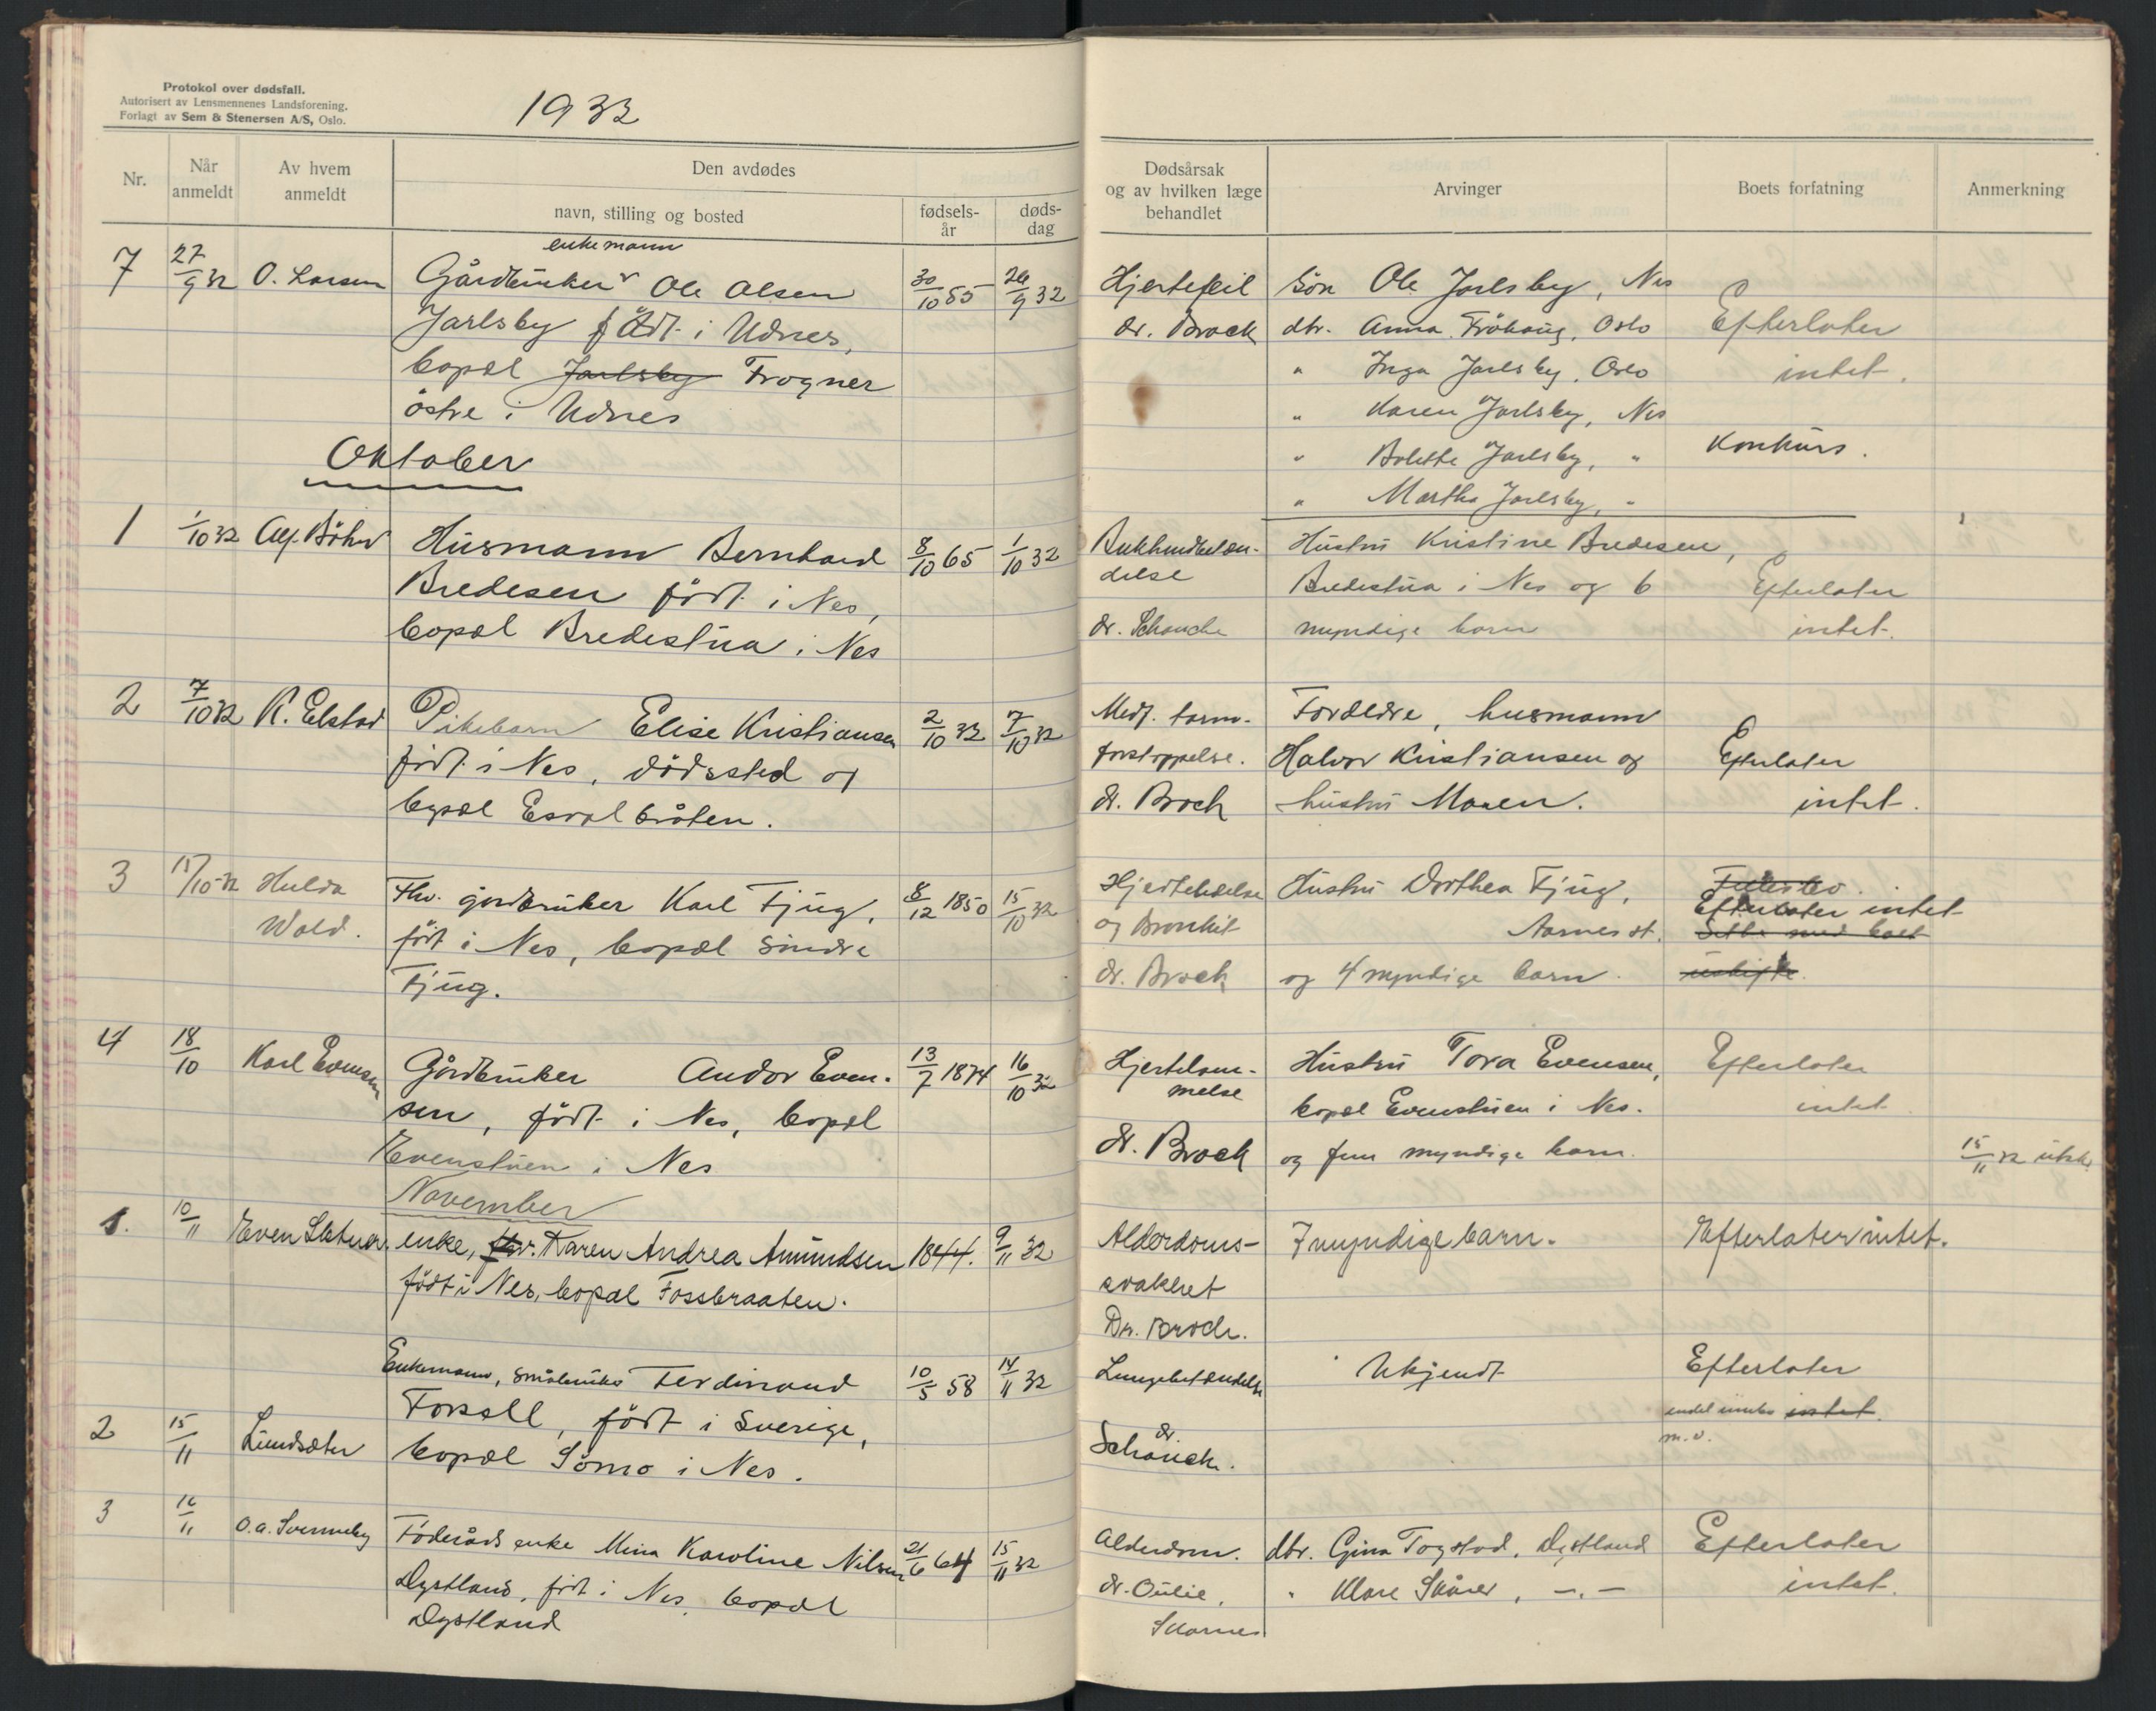 Protokol over dødsfall.
Autorisert av Lensmennenes Landsforening.
Forlagt av Sem & Stenersen A/S, Oslo.
1932
Nr.
Når anmeldt
Av hvem anmeldt
Den avdødes
navn, stilling og bosted
fødsels-år
døds-dag
Dødsårsak og av hvilken læge behandlet
Arvinger
Boets forfatning
Anmerkning
enkemann
7 27/9 32 O. Larsen Gårdbruker Ole Olsen 30/10 55 26/9 32
Jarlsby födt i Udnes,
bopel Jarlsby Frogner
östre i Udnes
Hjertefeil
dr. Brock
Sön Ole Jarlsby, Nes
dtr. Anna Fröhaug, Oslo
" Inga Jarlsby, Oslo
" Karen Jarlsby, Nes
" Bolette Jarlsby, "
" Martha Jarlsby, "
Efterlater
intet.
Konkurs.
Oktober
1 1/10 32 Alf. Böhn Husmann Bernhard 8/10 65 1/10 32
Bredesen född i Nes,
bopæl Bredestua i Nes
dr. Schanche
Hustru Kristine Bredesen,
Bredestua i Nes og 6
myndige barn
Efterlater
intet.
2 7/10 32 K. Elstad Pikebarn Elise Kristiansen 2/10 32 7/10 32
født i Nes, dödssted og
bopæl Esvalbråten.
Medf. tarm-
forstoppelse.
dr. Broch
Foreldre, husmann
Halvor Kristiansen og
hustru Maren.
Efterlater
intet.
3 17/10-32 Hulda Wold. Fhv. gårdbruker Karl Fjug, 8/12 1850 15/10 32
født i Nes, bopæl Sindre
Fjug.
Hjertelidelse
og Bronkit
dr. Broch
Hustru Dorthea Fjug,
Aarnes st.
og 4 myndige barn.
Efterlater intet
Sitter med boet
uskifte.
4 18/10 Karl Evensen Gårdbruker Andor Even- 13/7 1874 16/10 32
sen, födt i Nes, bopel
Evenstuen i Nes
Hjertelam-
melse
dr. Brock
Hustru Tora Evensen,
bopæl Evenstuen i Nes.
og fem myndige barn.
Efterlater
intet
15/11 32
November
1. 10/11 Even Sletner enke, Karen Andrea Amundsen 1844. 9/11 32
födt i Nes, bopæl Fossbraaten.
Alderdoms-
svakhet
Dr. Broch.
7 myndige barn.
Efterlater intet.
2 15/11 Lundsæter Enkemann, småbruker Ferdinand 10/5 58 14/11 32
Forsell, født i Sverige,
bopæl Sömo i Nes.
Lungebetændelse
dr. Schanche.
Ukjendt
Efterlater
endel innbo intet.
m.v.
3 16/11 O.A. Svenneby Föderåds enke Mina Karoline Nilsen 21/6 64 15/11 32
Dystland, födt i Nes, bopæl
Dystland
Alderdom.
dr. Oulie,
Skarnes
dtr. Gina Togstad, Dystland
" Klare Skårer, -.-
Efterlater
intet.